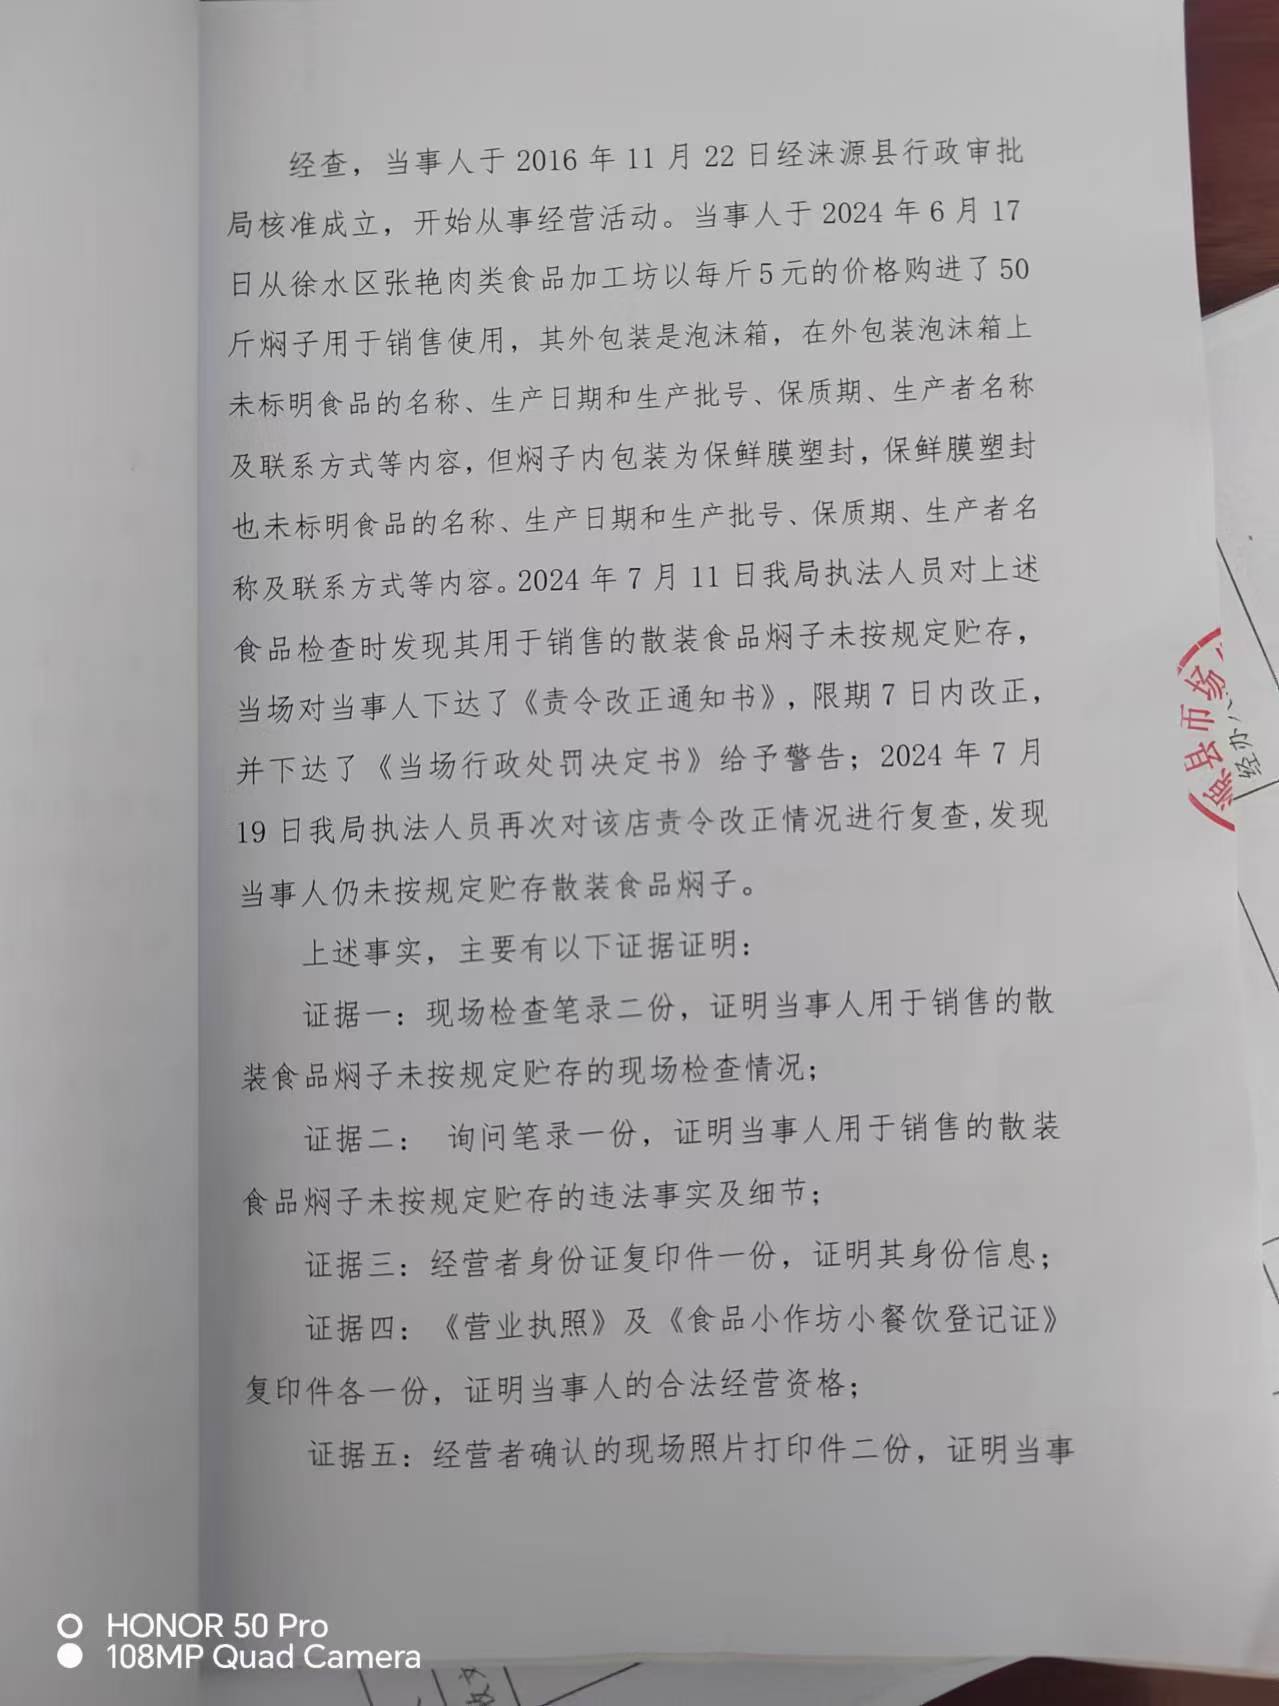 经查，当事人于 2016 年 11 月 22 日经涞源县行政审批
局核准成立，开始从事经营活动。当事人于 2024 年 6 月 17
日从徐水区张艳肉类食品加工坊以每斤 5 元的价格购进了 50
斤焖子用于销售使用，其外包装是泡沫箱，在外包装泡沫箱上
未标明食品的名称、生产日期和生产批号、保质期、生产者名称
及联系方式等内容，但焖子内包装为保鲜膜塑封，保鲜膜塑封
也未标明食品的名称、生产日期和生产批号、保质期、生产者名
称及联系方式等内容。2024 年 7 月 11 日我局执法人员对上述
食品检查时发现其用于销售的散装食品焖子未按规定贮存，
当场对当事人下达了《责令改正通知书》，限期 7 日内改正，
并下达了《当场行政处罚决定书》给予警告；2024 年 7 月
19 日我局执法人员再次对该店责令改正情况进行复查,发现
当事人仍未按规定贮存散装食品焖子。
上述事实，主要有以下证据证明：
证据一：现场检查笔录二份，证明当事人用于销售的散
装食品焖子未按规定贮存的现场检查情况；
证据二： 询问笔录一份，证明当事人用于销售的散装
食品焖子未按规定贮存的违法事实及细节；
证据三：经营者身份证复印件一份，证明其身份信息；
证据四：《营业执照》及《食品小作坊小餐饮登记证》
复印件各一份，证明当事人的合法经营资格；
证据五：经营者确认的现场照片打印件二份，证明当事
源县市场
经办人
HONOR 50 Pro
108MP Quad Camera